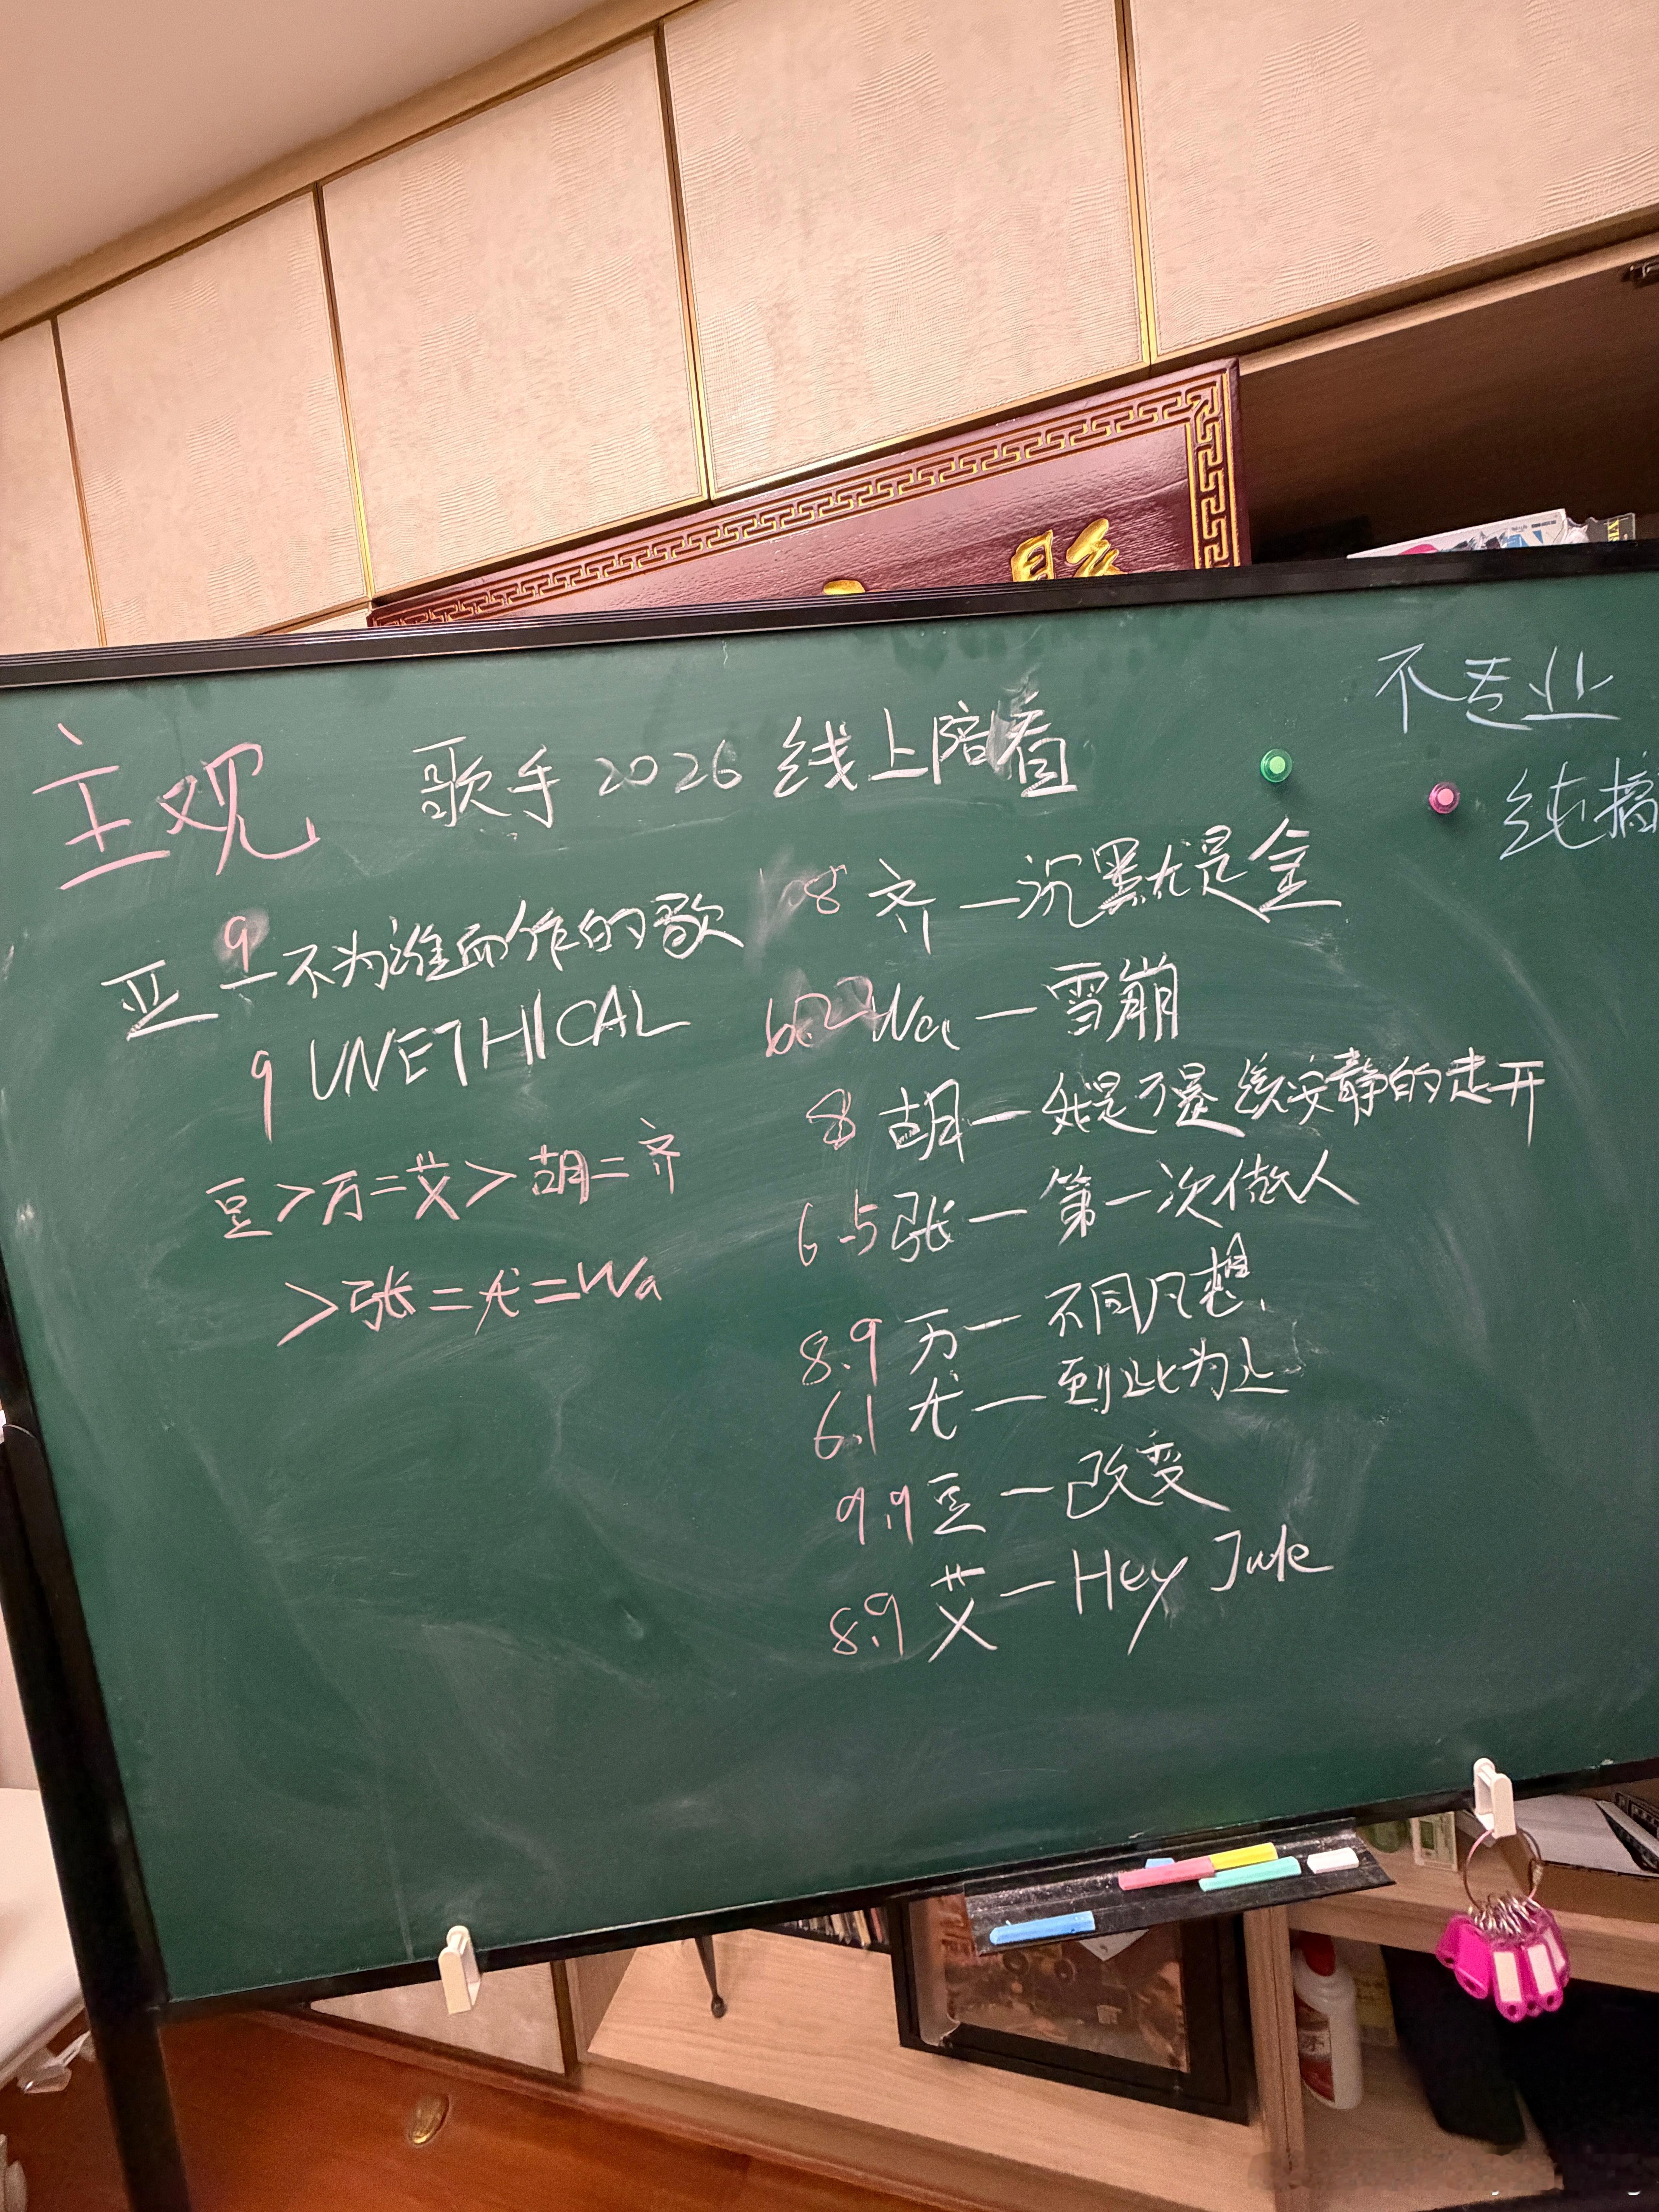 不专业
主观 歌手2026 线上陪看
纯搞
亚 9 一不为谁而作的歌
9 UNETHICAL
豆>万=艾>胡=齐
>张=尤=Wa
8 齐 — 沉默尤是金
6.2 Wa — 雪崩
8 胡 — 我是不是该安静的走开
6.5 张 — 第一次做人
8.9 万 — 不同凡想
6.1 尤 — 到此为止
9.9 豆 — 改变
8.9 艾 — Hey Jude